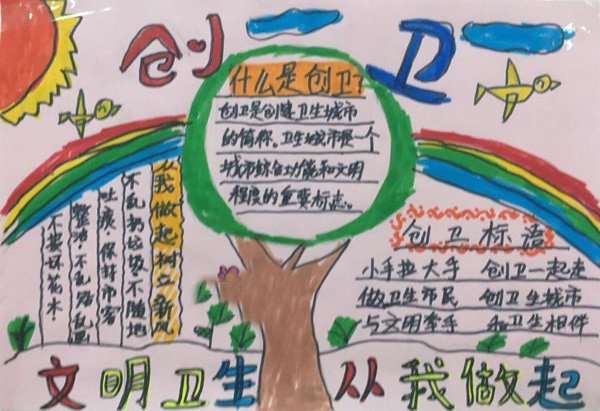 创卫
什么是创卫？
创卫是创建卫生城市
的简称。卫生城市是一个
城市综合功能和文明
程度的重要标志。
从我做起树立新风
不乱扔垃圾不随地
吐痰·保持市容
整洁·不乱贴乱画
不损坏花木
创卫标语
小手拉大手 创卫一起走
做卫生市民 创卫生城市
与文明牵手 和卫生相伴
文明卫生 从我做起